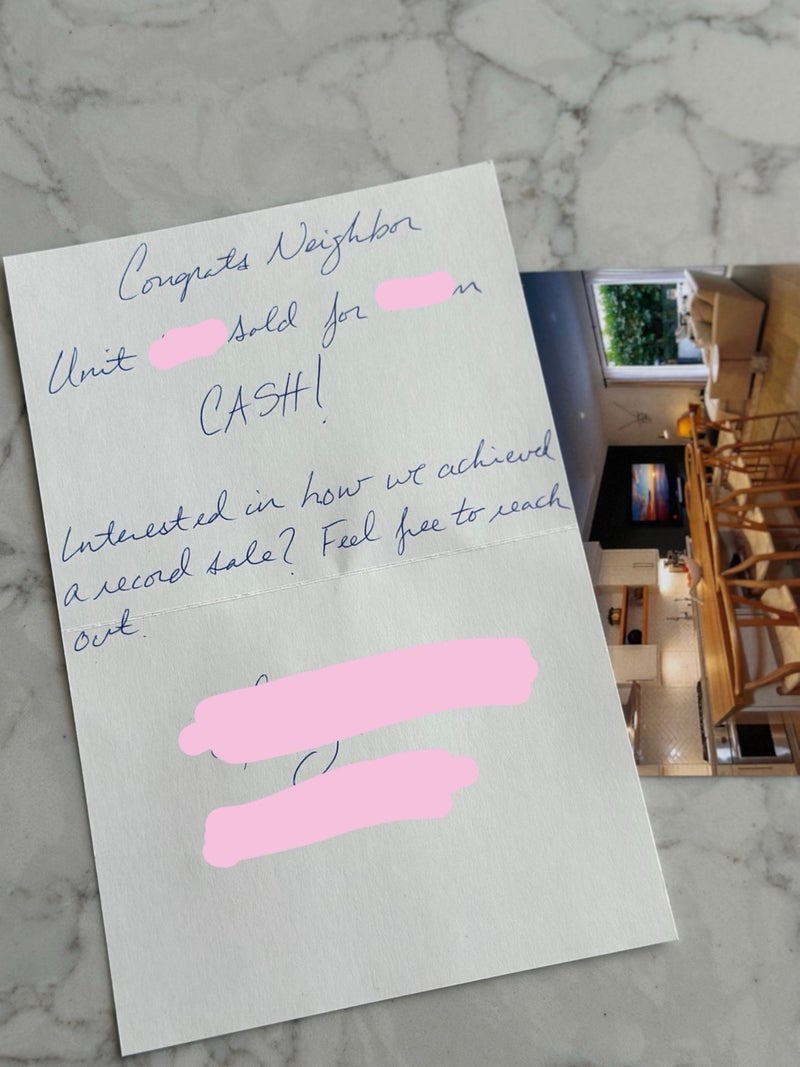 Congrats Neighbor
Unit sold for m
CASH!
Interested in how we achieved
a record sale? Feel free to reach
out.